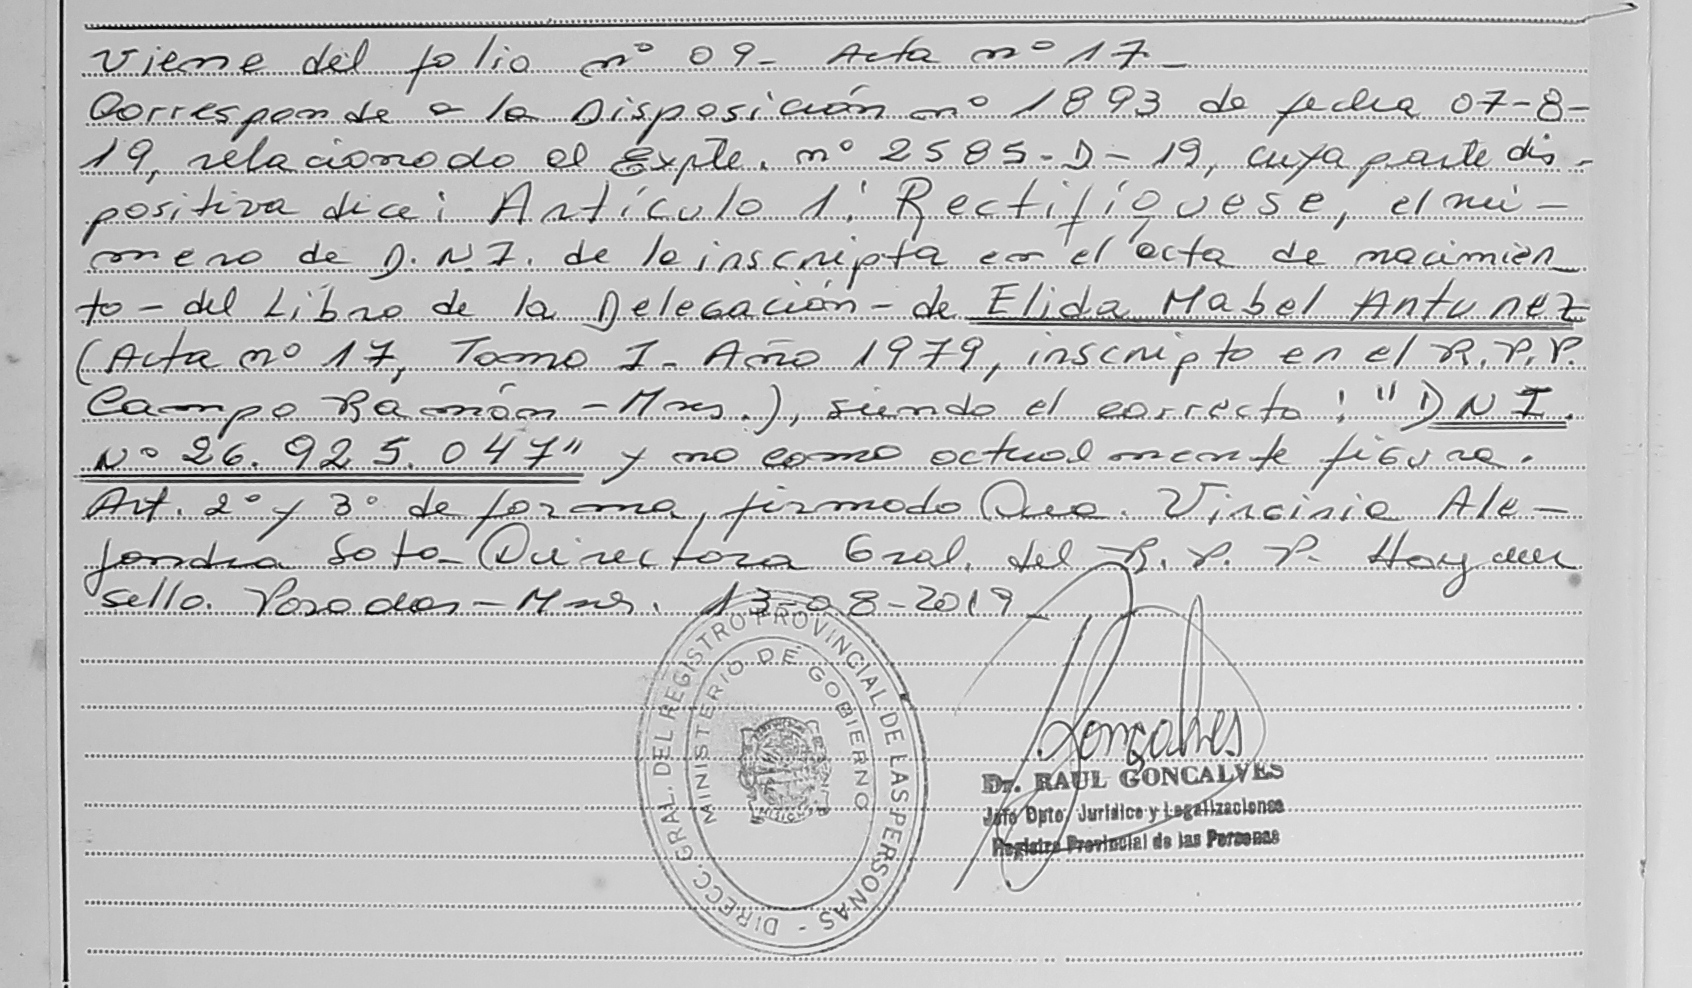 Viene del folio nº 09- Acta nº 17-
Corresponde a la Disposición nº 1893 de fecha 07-8-
19, relacionado el Expte. nº 2585-D-19, cuya parte dis-
positiva dice: Artículo 1: Rectifíquese, el nú-
mero de D.N.I. de la inscripta en el acta de nacimien
to - del Libro de la Delegación - de Elida Mabel Antunez
(Acta nº 17, Tomo I- Año 1979, inscripto en el R.P.P.
Campo Ramón - Mnes.), siendo el correcto: "DNI.
Nº 26.925.047" y no como actualmente figura.
Art. 2º y 3º de forma, firmado Dra. Virginia Ale-
jandra Soto- Directora Gral. del R.P.P. Hay un
sello. Posadas - Mnes. 13-08-2019
DIRECC. GRAL. DEL REGISTRO PROVINCIAL DE LAS PERSONAS -
MINISTERIO DE GOBIERNO
Goncalves
Dr. RAUL GONCALVES
Jefe Dpto. Jurídico y Legalizaciones
Registro Provincial de las Personas